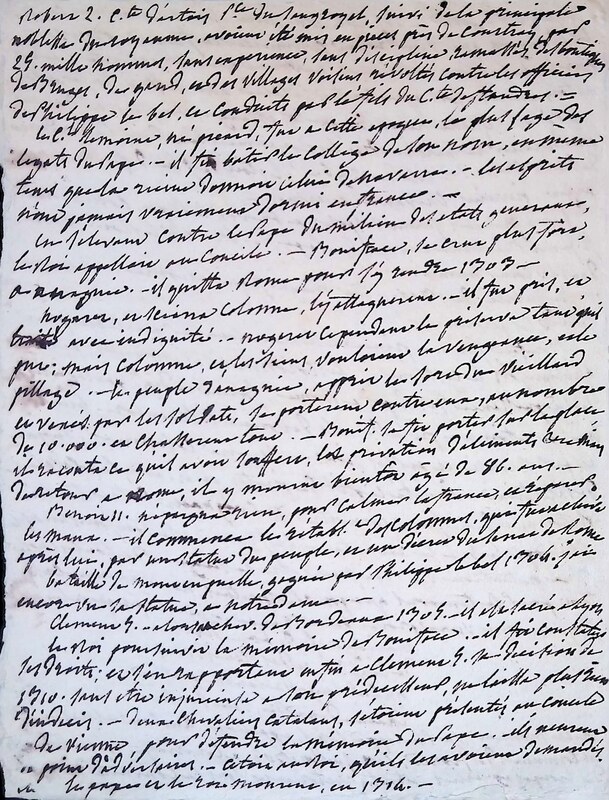 Robert 2. C.te d'artois P.ce du sang royal, suivi de la principale
noblesse du royaume, avoient été mis en pièces près de Courtray, par
24. mille hommes, sans experience, sans discipline, ramassés, des boutiques
de Bruges, de gand, et des villages voisins révoltés contre les officiers
de Philippe le bel, et conduits par le fils du C.te de flandres. —
le C.al lemoine, né picard, fut a cette epoque, le plus sage des
legats du Pape. — il fit batir le Collège de son nom, en même
tems que la reine donnoit celui de navarre. — les esprits
n'ont jamais vraiement dormi en france. —
en s'elevant contre le Pape du milieu des etats generaux,
le Roi appellait au Concile. — Boniface, se crut plus fort,
a anagnie. — il quitta Rome pour s'y rendre 1303 —
nogaret, et sciarra Colonne, l'y attaquerent. — il fut pris, et
traité avec indignité. — nogaret cependant le préserva tant qu'il
put; mais Colonne, et les siens, vouloient la vengeance, et le
pillage. — le peuple d'anagnie, apprit le sort du vieillard
et vexés par les soldats, se porterent contre eux, au nombre
de 10.000. et chasserent tout. — Bonif. se fit porter sur la place
et raconta ce qu'il avoit souffert, les privations d'aliments
de retour a Rome, il y mourut bientôt agé de 86. ans. —
Benoit 11. n'épargna rien, pour calmer la france, et réparer
les maux. — il commença le rétabl.t des Colonnes, qui fut achevé
après lui, par un statut du peuple, et un décret du senat de Rome
bataille de mons en puelle, gagnée par Philippe le bel 1304. j'ai
encore vu sa statue, a notre dame. —
Clement 5. — alors archev. de Bordeaux 1305. — il est sacré a Lyon
le Roi poursuivit la mémoire de Boniface. — il fit constater
ses droits, et s'en rapporta enfin a Clement 5. sa décision de
1310. sans etre injurieuse a son prédecesseur, ne laissa plus rien
d'indécis. — deux chevaliers catalans, s'etoient présentés au Concile
de Vienne, pour défendre la mémoire du Pape. — ils n'eurent
point d'adversaires. — C'etoit au Roi, qu'ils les avoient demandés.
le pape et le roi moururent, en 1314. —